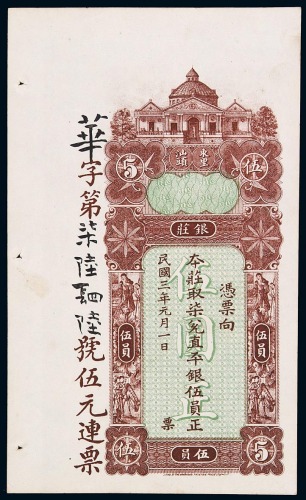 東里
汕頭
伍
5
銀莊
憑票向
本莊取柒兌直平銀伍員正
民國三年元月一日
票
伍員
伍員
伍員
5
伍
華字第柒陸肆陸號伍元連票